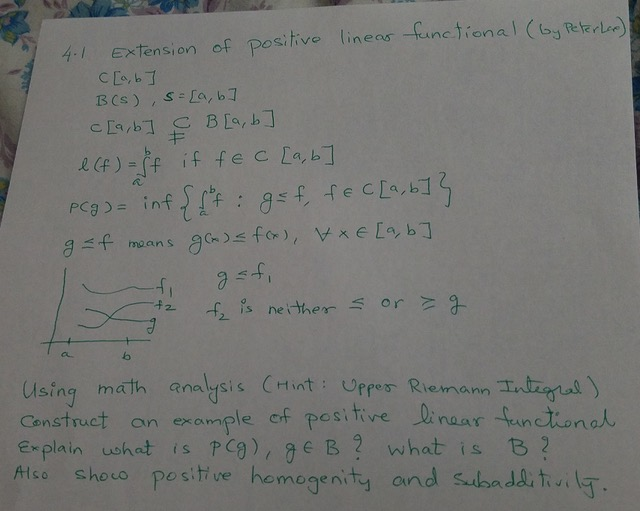 4.1 Extension of positive linear functional (by Peter Lax)
C[a,b]
B(s), s=[a,b]
C[a,b] ⊊ B[a,b]
l(f) = ∫ₐᵇ f if f ∈ C [a,b]
P(g) = inf { ∫ₐᵇ f : g ≤ f, f ∈ C[a,b] }
g ≤ f means g(x) ≤ f(x), ∀ x ∈ [a,b]
f₁
f₂
g
a b
g ≤ f₁
f₂ is neither ≤ or ≥ g
Using math analysis (Hint: Upper Riemann Integral)
Construct an example of positive linear functional
Explain what is P(g), g ∈ B? what is B?
Also show positive homogenity and subadditivity.